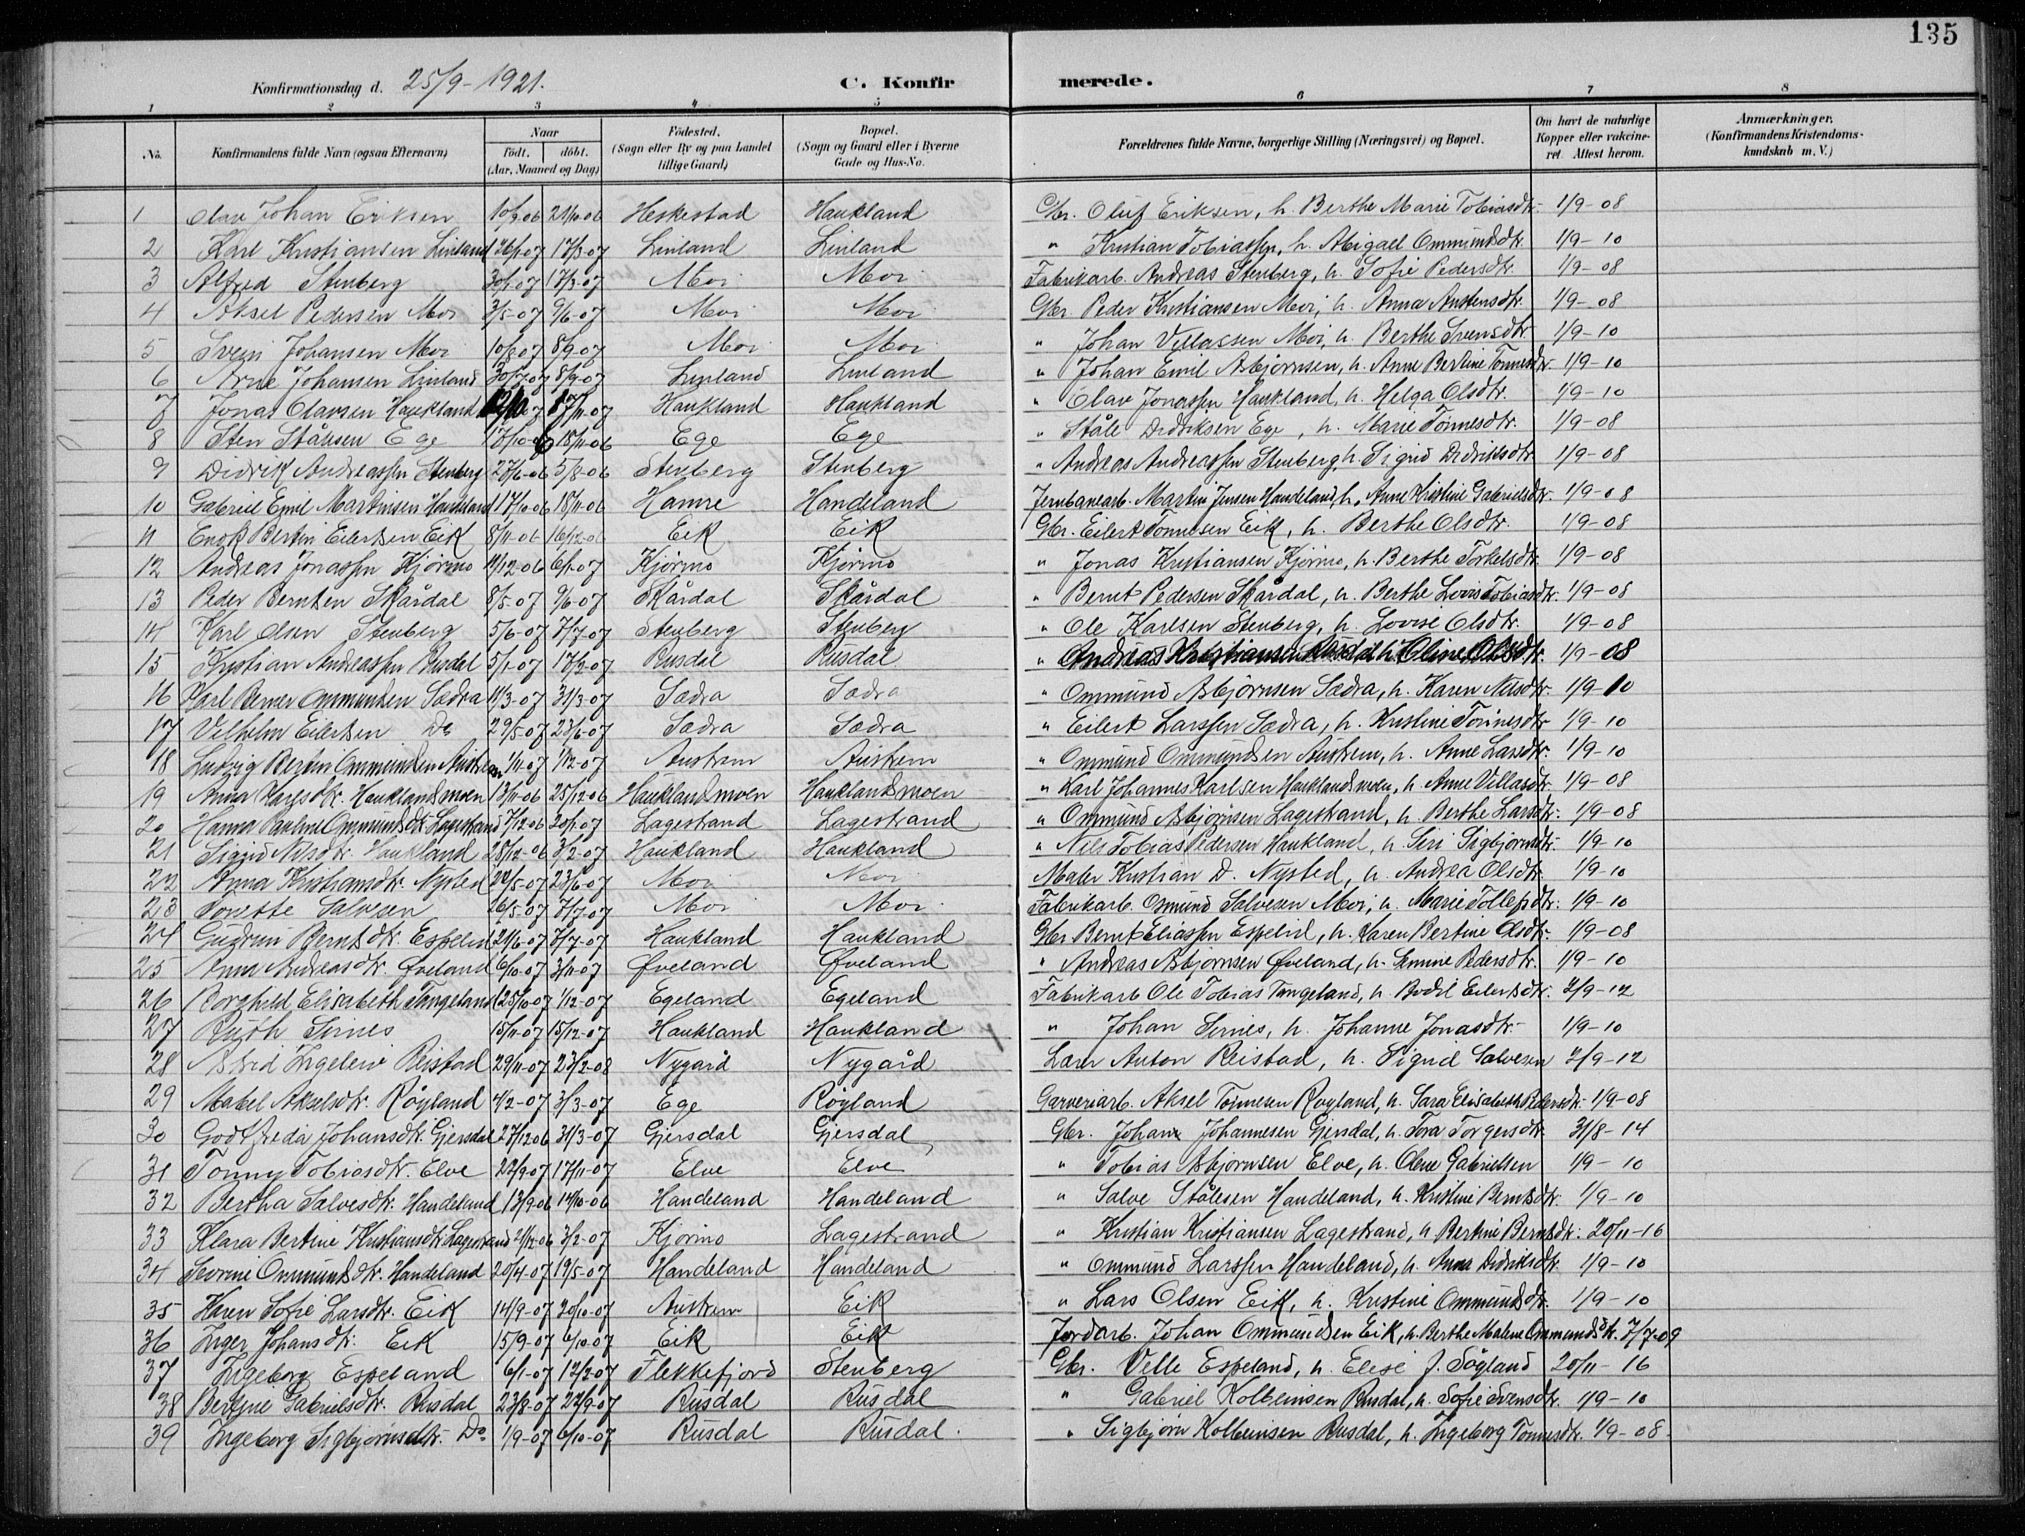 135
Konfirmationsdag d. 25/9-1921. C. Konfirmerede.
1 2 3 4 5 6 7 8
No. Konfirmandens fulde Navn (ogsaa Efternavn) Naar født. døbt. (Aar, Maaned og Dag) Fødested. (Sogn eller By og paa Landet tillige Gaard) Bopæl. (Sogn og Gaard eller i Byerne Gade og Hus-No. Forældrenes fulde Navne, borgerlige Stilling (Næringsvei) og Bopæl. Om havt de naturlige Kopper eller vakcineret. Attest herom. Anmærkninger. (Konfirmandens Kristendomskundskab m. V.)
1 Olav Johan Eriksen 10/9-06 21/10-06 Heskestad Haukland Gbr. Oluf Eriksen, h. Berthe Marie Tobiasdtr. 1/9-08
2 Karl Kristiansen Linland 26/1-07 17/3-07 Linland Linland " Kristian Tobiassen, h. Abigael Ommundsdtr. 1/9-10
3 Alfred Stenberg 30/1-07 17/3-07 Moi Moi Fabrikarb. Andreas Stenberg, h. Sofie Pedersdtr. 1/9-08
4 Aksel Pedersen Moi 3/5-07 9/6-07 Moi Moi Gbr. Peder Kristiansen Moi, h. Anna Austensdtr. 1/9-08
5 Svein Johansen Moi 10/8-07 8/9-07 Moi Moi " Johan Villassen Moi, h. Berthe Svensdtr. 1/9-10
6 Arne Johansen Linland 30/7-07 8/9-07 Linland Linland " Johan Emil Asbjørnsen, h. Anne Bertine Tønnesdtr. 1/9-10
7 Jonas Olavsen Haukland 12/10-07 17/11-07 Haukland Haukland " Olav Jonassen Haukland, h. Helga Olsdtr. 1/9-10
8 Sten Stålesen Ege 17/10-06 18/11-06 Ege Ege " Ståle Didriksen Ege, h. Marie Tønnesdtr. 1/9-08
9 Didrik Andreassen Stenberg 27/6-06 5/8-06 Stenberg Stenberg " Andreas Andreassen Stenberg, h. Sigrid Didriksdtr. 1/9-08
10 Gabriel Emil Martinsen Handeland 17/10-06 18/11-06 Hamre Handeland Jernbanearb. Martin Jensen Handeland, h. Anne Kristine Gabrielsdtr. 1/9-08
11 Enok Bertin Eilertsen Eik 8/11-06 16/12-06 Eik Eik Gbr. Eilert Tønnesen Eik, h. Berthe Olsdtr. 1/9-08
12 Andreas Jonassen Kjørmo 11/12-06 6/1-07 Kjørmo Kjørmo " Jonas Kristiansen Kjørmo, h. Berthe Torkelsdtr. 1/9-08
13 Peder Berntsen Skårdal 8/5-07 9/6-07 Skårdal Skårdal " Bernt Pedersen Skårdal, h. Berthe Lovis Tobiasdtr. 1/9-08
14 Karl Olsen Stenberg 5/6-07 7/7-07 Stenberg Stenberg " Ole Karlsen Stenberg, h. Lovise Olsdtr. 1/9-08
15 Kristian Andreassen Rusdal 5/1-07 17/2-07 Rusdal Rusdal " Andreas Kristiansen Rusdal h. Oline Olsdtr. 1/9-08
16 Karl Berner Ommundsen Sædra 11/3-07 31/3-07 Sædra Sædra " Ommund Asbjørnsen Sædra, h. Karen Nilsdtr. 1/9-10
17 Vilhelm Eilertsen Do 29/5-07 23/6-07 Sædra Sædra " Eilert Larssen Sædra, h. Kristine Tønnesdtr. 1/9-10
18 Ludvig Bertin Ommundsen Austrem 1/11-07 1/12-07 Austrem Austrem " Ommund Ommundsen Austrem, h. Anne Larsdtr. 1/9-10
19 Anna Karlsdtr. Hauklandsmoen 13/11-06 25/12-06 Hauklandsmoen Hauklandsmoen " Karl Johannes Karlsen Hauklandsmoen, h. Anne Villasdtr. 1/9-08
20 Hanna Pauline Ommundsdtr. Lagestrand 7/12-06 20/1-07 Lagestrand Lagestrand " Ommund Asbjørnsen Lagestrand, h. Berthe Larsdtr. 1/9-08
21 Sigrid Nilsdtr. Haukland 28/12-06 3/2-07 Haukland Haukland " Nils Tobias Pedersen Haukland, h. Siri Sigbjørnsdtr. 1/9-10
22 Anna Kristiansdtr. Nysted 24/5-07 23/6-07 Moi Moi Maler Kristian D. Nysted, h. Andrea Olsdtr. 1/9-10
23 Tonette Salvesen 26/5-07 7/7-07 Moi Moi Fabrikarb. Osmund Salvesen Moi, h. Marie Tollefsdtr. 1/9-10
24 Gudrun Berntsdtr. Espelid 21/6-07 7/7-07 Haukland Haukland Gbr. Bernt Eliassen Espelid, h. Karen Bertine Olsdtr. 1/9-08
25 Anna Andreasdtr. Øveland 6/10-07 3/11-07 Øveland Øveland " Andreas Asbjørnsen Øveland, h. Semine Pedersdtr. 1/9-10
26 Borghild Elisabeth Tengeland 25/10-07 1/12-07 Egeland Egeland Fabrikarb. Ole Tobias Tengeland, h. Bodil Eilertsdtr. 2/9-12
27 Ruth Sirnes 15/11-07 15/12-07 Haukland Haukland " Johan Sirnes, h. Johanne Jonasdtr. 1/9-10
28 Astrid Ingeleiv Reistad 29/11-07 23/2-08 Nygård Nygård Lars Anton Reistad, h. Sigrid Salvesen 2/9-12
29 Mabel Akselsdtr. Røyland 4/2-07 3/3-07 Ege Røyland Garveriarb. Aksel Tønnesen Røyland, h. Sara Elisabeth Pedersdtr. 1/9-08
30 Godtfreda Johansdtr. Gjersdal 27/12-06 31/3-07 Gjersdal Gjersdal Gbr. Johan Johannesen Gjersdal, h. Tora Torgersdtr. 31/8-14
31 Tonny Tobiasdtr. Elve 22/9-07 17/11-07 Elve Elve " Tobias Asbjørnsen Elve, h. Olene Gabrielsen 1/9-10
32 Bertha Salvesdtr. Handeland 13/9-06 14/10-06 Handeland Handeland " Salve Stålesen Handeland, h. Kristine Berntsdtr. 1/9-10
33 Klara Bertine Kristiansdtr. Lagestrand 21/12-06 3/2-07 Kjørmo Lagestrand " Kristian Kristiansen Lagestrand, h. Bertine Berntsdtr. 20/11-16
34 Severine Ommundsdtr. Handeland 20/4-07 19/5-07 Handeland Handeland " Ommund Larssen Handeland, h. Anna Didriksdtr. 1/9-10
35 Karen Sofie Larsdtr. Eik 14/9-07 20/10-07 Austrem Eik " Lars Olsen Eik, h. Kristine Ommundsdtr. 1/9-10
36 Inger Johansdtr. Eik 15/9-07 6/10-07 Eik Eik Jordarb. Johan Ommundsen Eik, h. Berthe Malene Ommundsdtr. 7/7-09
37 Ingeborg Espeland 6/1-07 12/2-07 Flekkefjord Stenberg Gbr. Velle Espeland, h. Elise f. Søyland 20/11-16
38 Bertine Gabrielsdtr. Rusdal 23/8-07 22/9-07 Rusdal Rusdal " Gabriel Kolbeinsen Rusdal, h. Sofie Svensdtr. 1/9-10
39 Ingeborg Sigbjørnsdtr. Do. 1/9-07 6/10-07 Rusdal Rusdal. " Sigbjørn Kolbeinsen Rusdal, h. Ingeborg Tønnesdtr. 1/9-08.